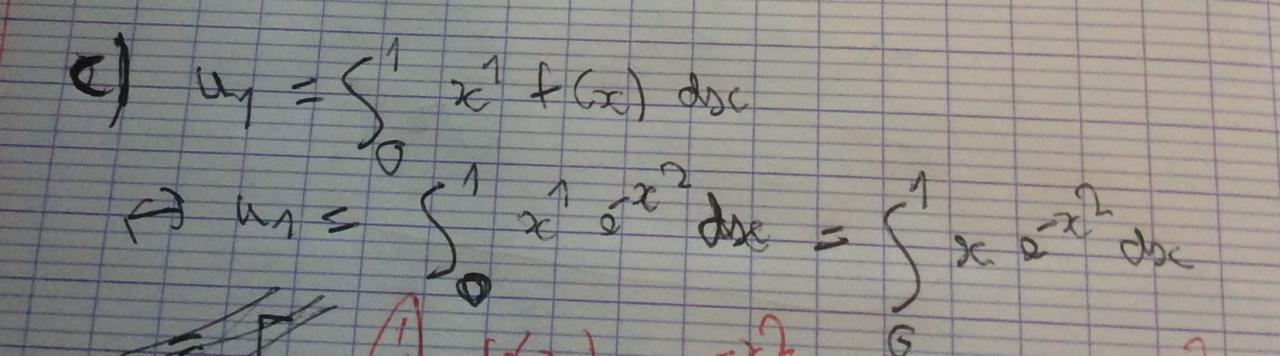 c) u₁ = ∫₀¹ x¹ f(x) dx
↔ u₁ = ∫₀¹ x¹ e^{-x²} dx = ∫₀¹ x e^{-x²} dx